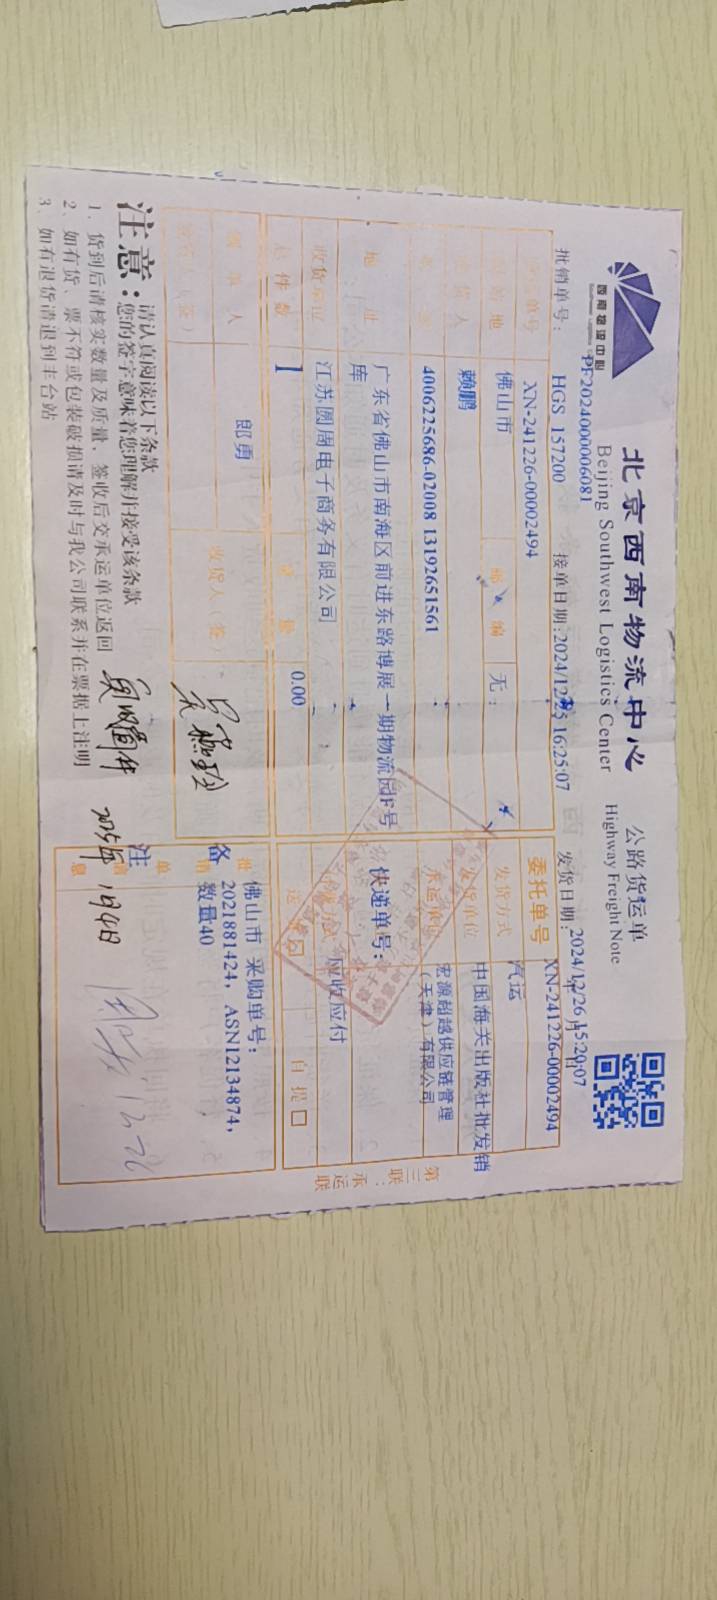 西南物流中心
北京西南物流中心
Beijing Southwest Logistics Center
公路货运单
Highway Freight Note
PF20240000006081
批销单号: HGS 157200 接单日期:2024/12/25 16:25:07 发货日期: 2024/12/26 15:20:07
XN-241226-00002494 委托单号 XN-241226-00002494
佛山市 邮 编 无 发货方式 汽运
赖鹏 发货单位 中国海关出版社批发销
4006225686-02008 13192651561 承运单位 宏源超越供应链管理
(天津)有限公司
地 址 广东省佛山市南海区前进东路博展一期物流园F号
库
快递单号:
收货单位 江苏圆周电子商务有限公司 应收应付
总 件 数 1 重 量 0.00 送 自 提 □
制 单 人 郎勇 收货人(签)
第三联:承运联
批销单信息
备注
佛山市 采购单号:
2021881424, ASN12134874,
数量40
注意:
请认真阅读以下条款
您的签字意味着您理解并接受该条款
1、货到后请核实数量及质量,签收后交承运单位返回
2、如有货、票不符或包装破损请及时与我公司联系并在票据上注明
3、如有退货请退到丰台站
12-26